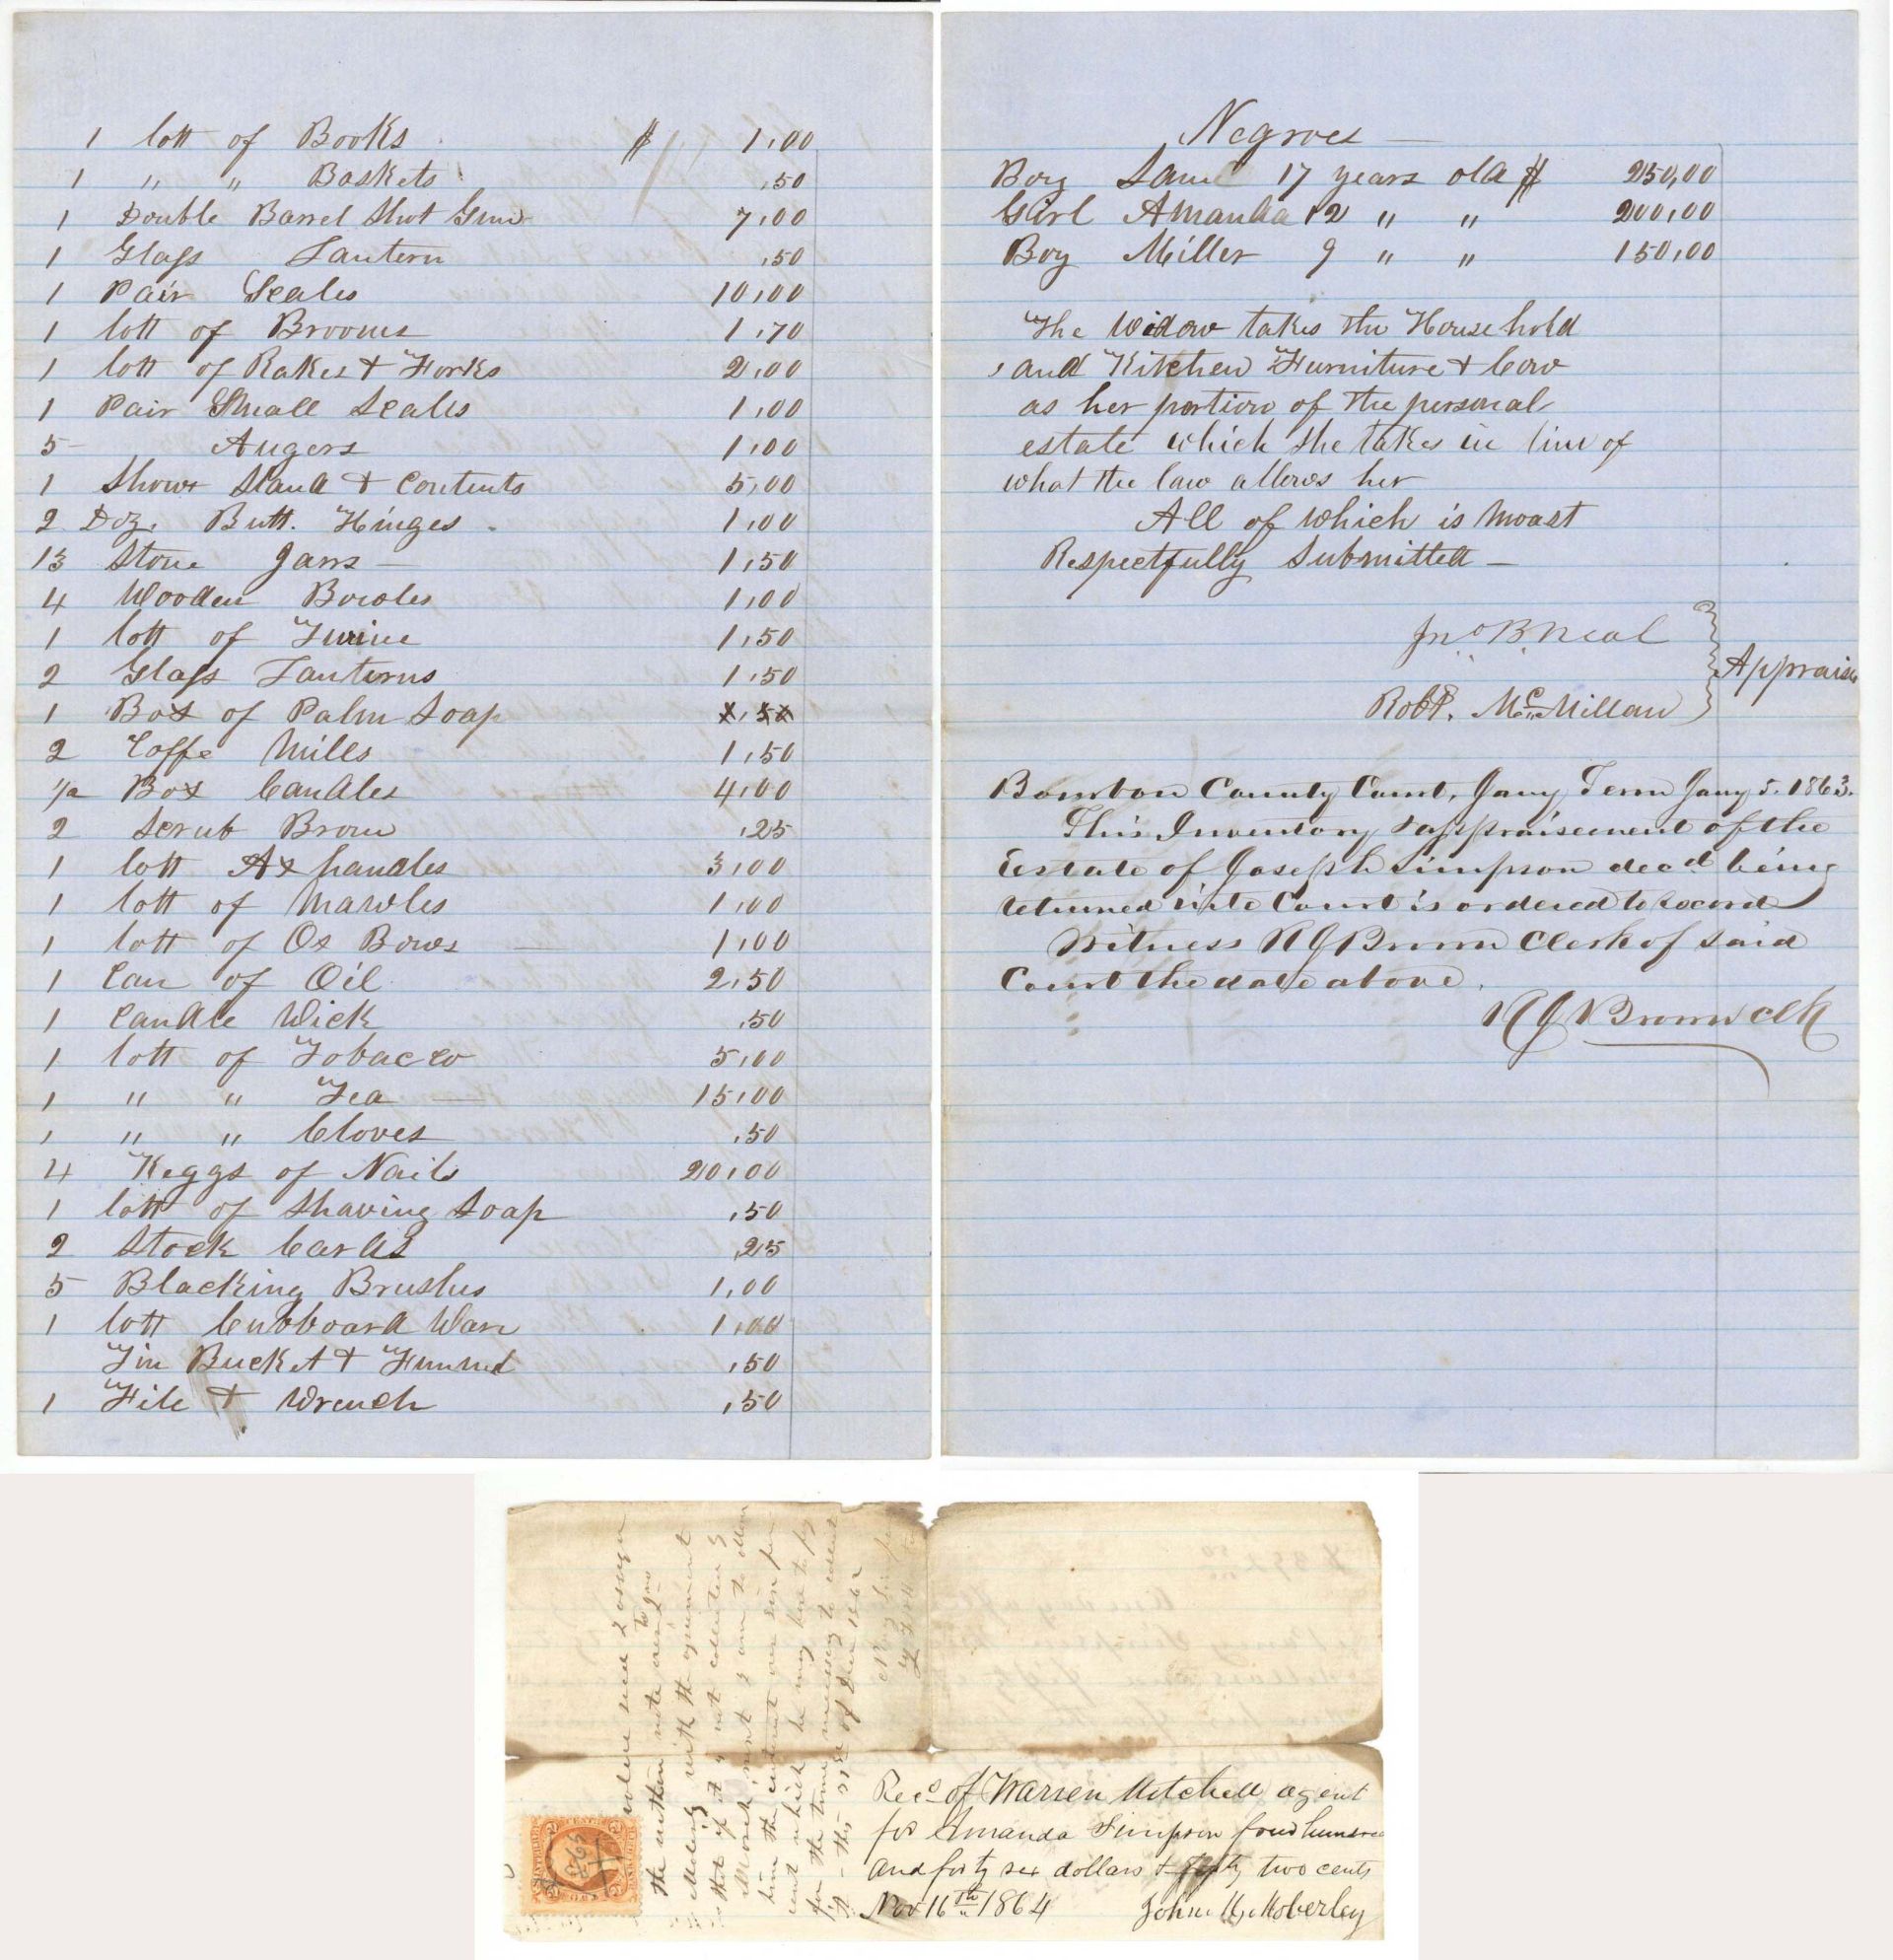 1 lott of Books $ 1,00
1 " " Baskets ,50
1 Double Barrel Shot Gun 7,00
1 Glass Lantern ,50
1 Pair Scales 10,00
1 lott of Brooms 1,70
1 lott of Rakes & Forks 2,00
1 Pair Small Scales 1,00
5 Augers 1,00
1 Show Stand & Contents 5,00
2 Doz. Butt. Hinges 1,00
13 Stone Jars — 1,50
4 Wooden Bowles 1,00
1 lott of Twine 1,50
2 Glass Lanterns 1,50
1 Box of Palm Soap
2 Coffe Mills 1,50
1/2 Box Candles 4,00
2 Scrub Brom ,25
1 lott Ax handles 3,00
1 lott of Mawles 1,00
1 lott of Ox Bows — 1,00
1 Can of Oil 2,50
1 Candle Wick ,50
1 lott of Tobacco 5,00
1 " " Tea — 15,00
1 " " Cloves ,50
4 Keggs of Nails 20,00
1 lott of Shaving Soap ,50
2 Stock Cards ,25
5 Blacking Brushes 1,00
1 lott Cubboard Ware 1,00
Tin Bucket & Funnel ,50
1 File & Wrench ,50
Negroes —
Boy Sam 17 years old $ 250,00
Girl Amanda 12 " " 200,00
Boy Miller 9 " " 150,00
The Widow takes the Household
and Kitchen Furniture & Cow
as her portion of the personal
estate which she takes in lieu of
what the law allows her
All of which is Moast
Respectfully Submitted —
Jno B Neal
Appraisers
Robt. McMillan
Bourbon County Court, Jany Term Jany 5. 1863.
This Inventory & appraisement of the
Estate of Joseph Simpson decd being
returned into Court is ordered to record
Witness R J Brown Clerk of said
Court the date above.
R J Brown Clk
the within note
Moberly with the agreement
that if it is not collected
for the time necessary to collect
Recd of Warren Mitchell agent
for Amanda Simpson four hundred
and forty six dollars & fifty two cents
Nov 16th 1864 John M. Moberley